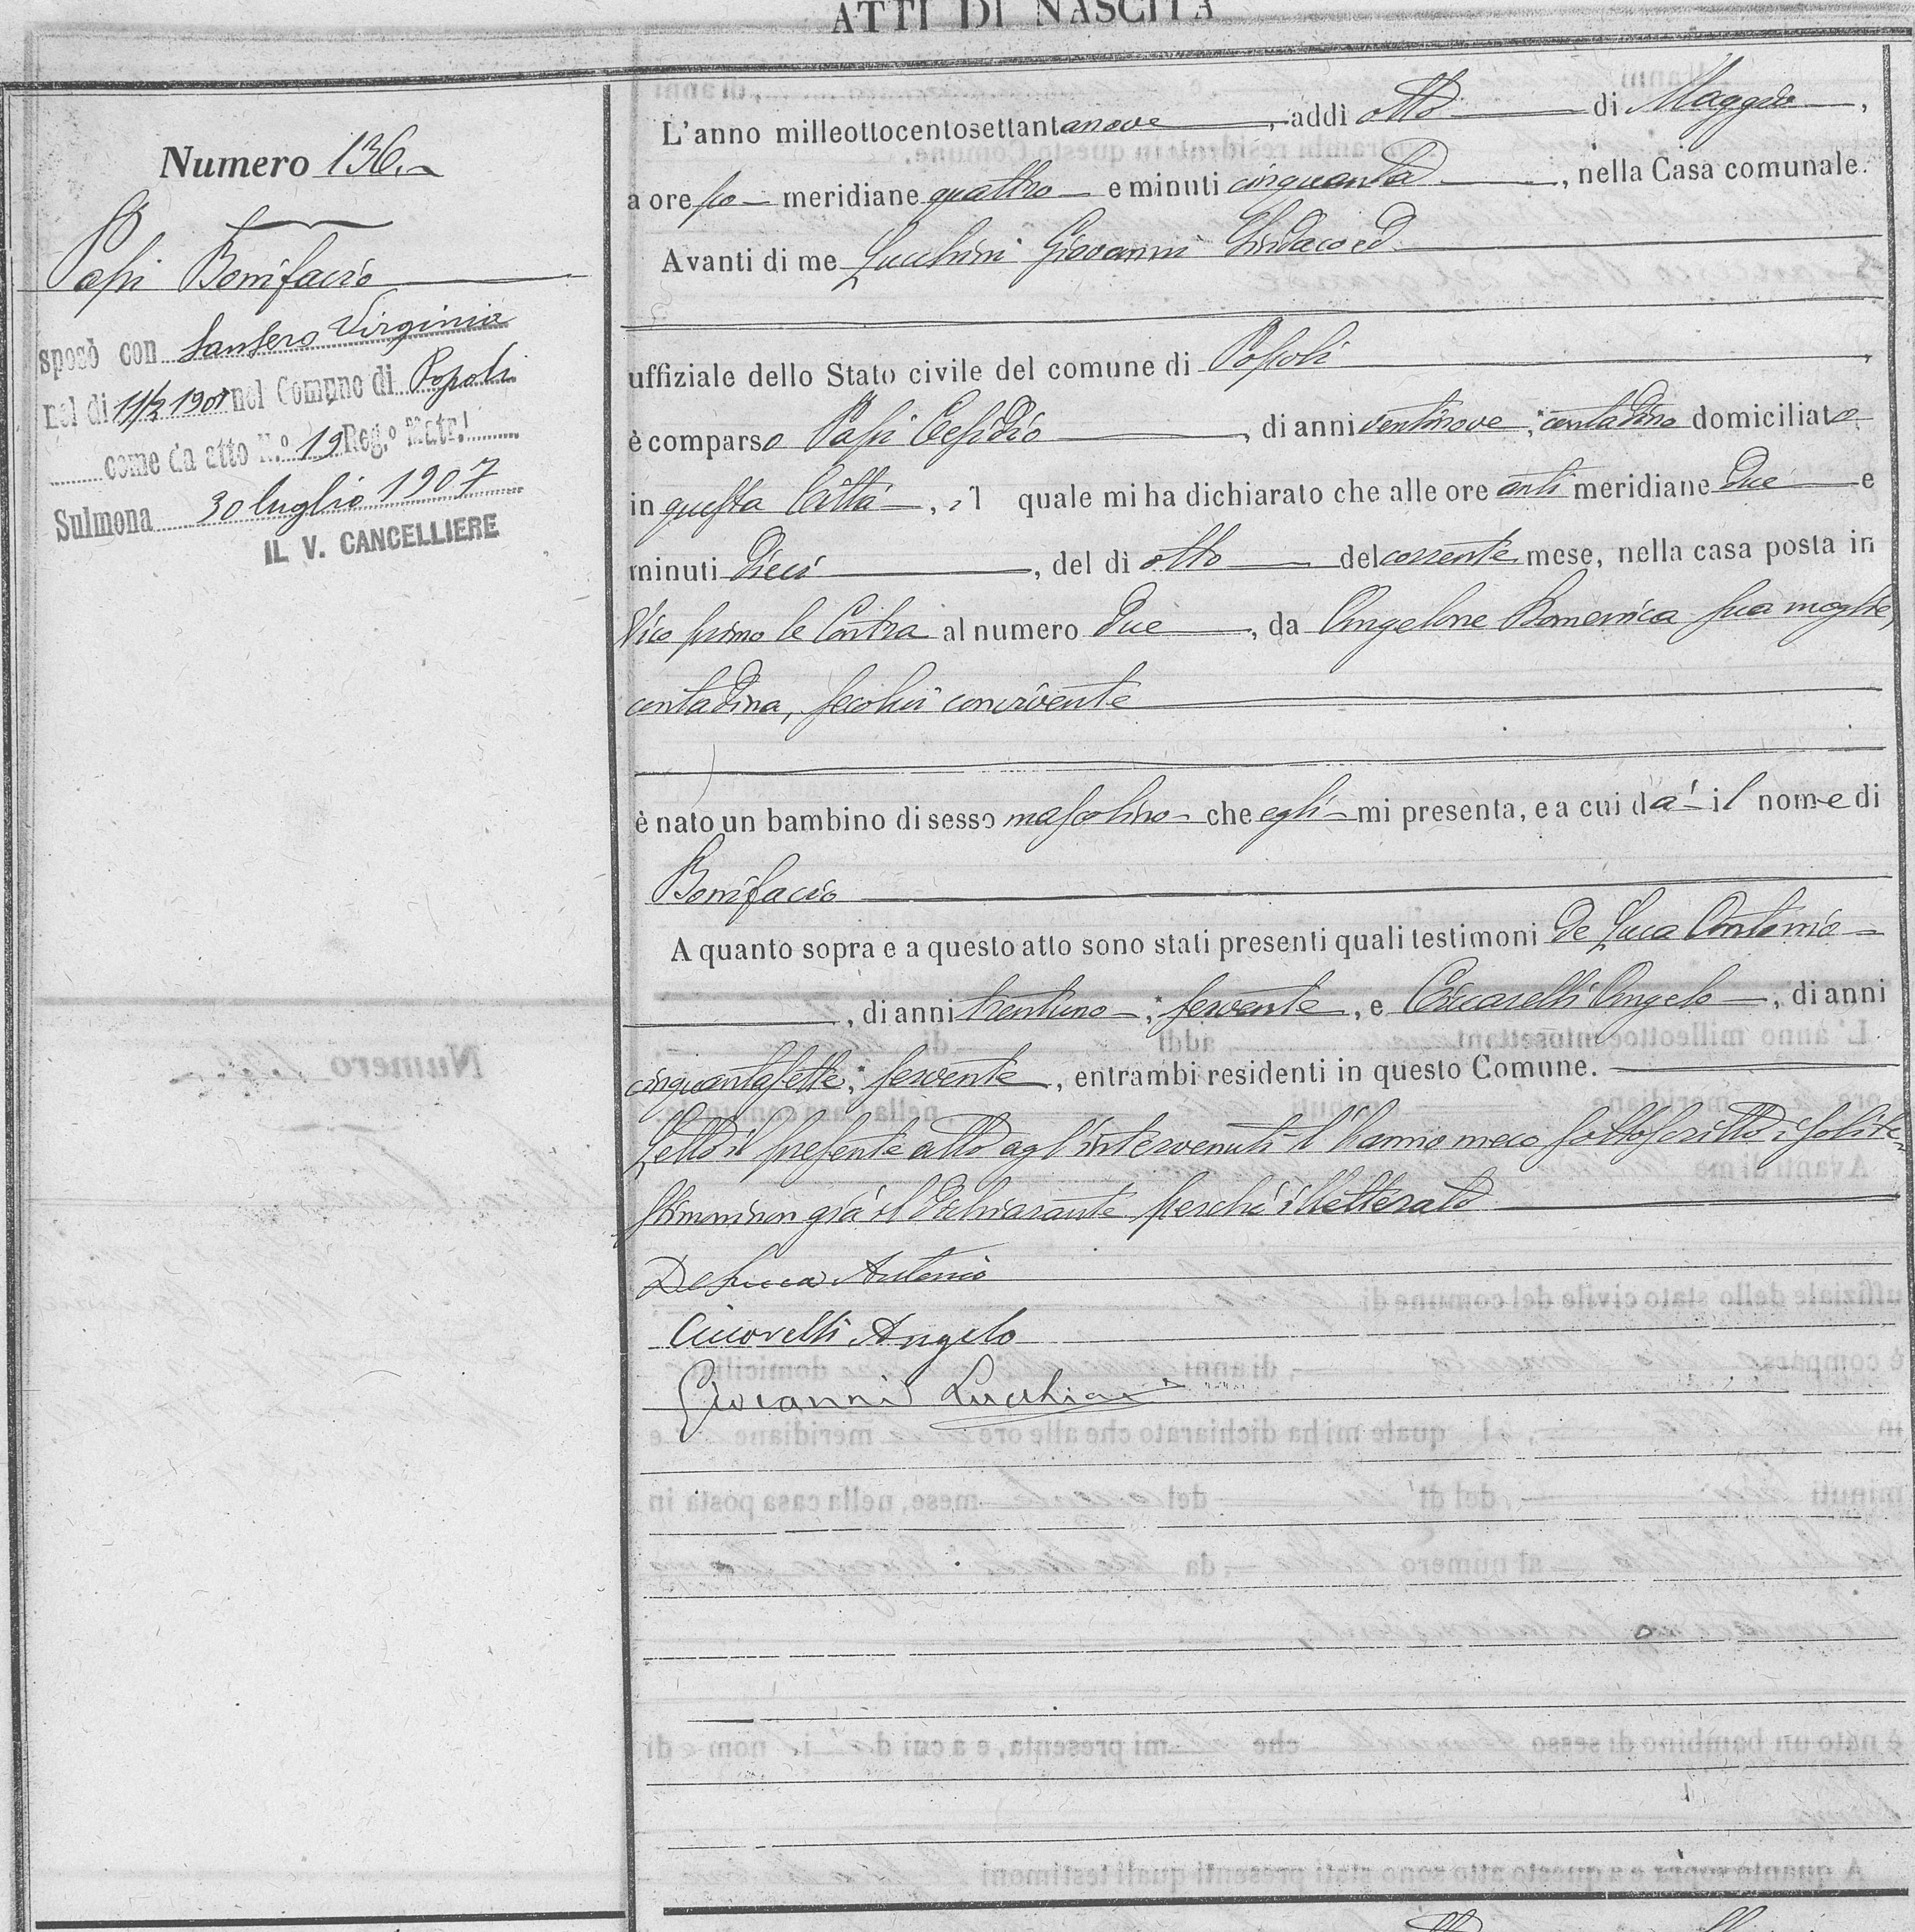 ATTI DI NASCITA
Numero 136.
Papi Bonifacio
sposò con Santero Virginia
nel di 11/2 1901 nel Comune di Popoli
come da atto N.º 19 Reg.º Matr.!
Sulmona 30 luglio 1907
IL V. CANCELLIERE
L'anno milleottocentosettantanove, addì otto di Maggio,
a ore po meridiane quattro e minuti cinquanta, nella Casa comunale.
Avanti di me Lucchini Giovanni Sindaco ed
uffiziale dello Stato civile del comune di Popoli,
è comparso Papi Cesidio, di anni ventinove, contadino domiciliato
in questa Città, il quale mi ha dichiarato che alle ore anti meridiane due e
minuti dieci, del dì otto del corrente mese, nella casa posta in
Vico primo le Contra al numero due, da Angelone Domenica sua moglie,
contadina, secolui convivente
è nato un bambino di sesso mascolino che egli mi presenta, e a cui dà il nome di
Bonifacio
A quanto sopra e a questo atto sono stati presenti quali testimoni De Luca Antonio
, di anni trentuno, servente, e Ciccarelli Angelo, di anni
cinquantasette, servente, entrambi residenti in questo Comune.
Letto il presente atto agl'intervenuti l'hanno meco sottoscritto i soli te-
stimoni non già il dichiarante perchè illetterato
De Luca Antonio
Ciccarelli Angelo
Giovanni Lucchini